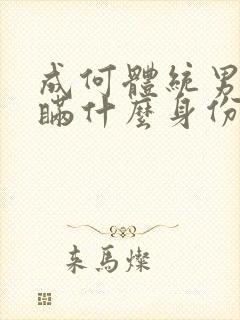 成何體統男
瞞什麼身份
来馬燦